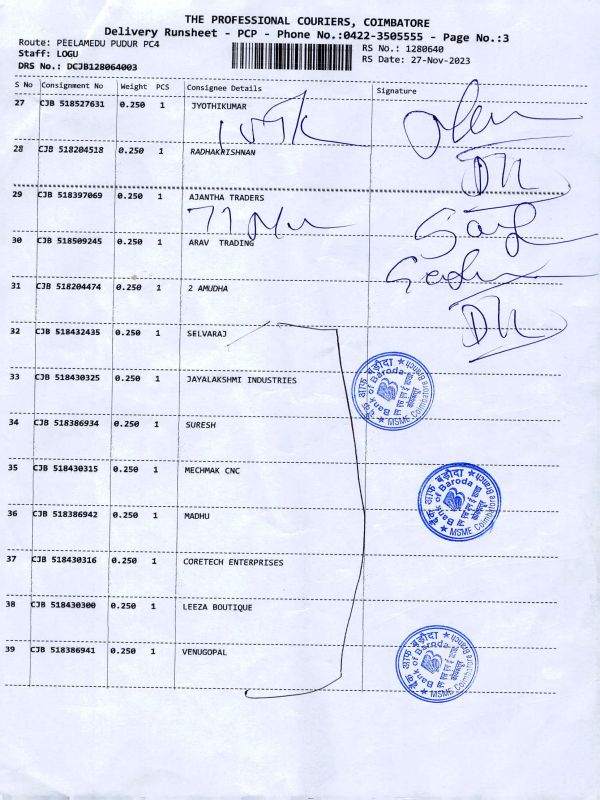 THE PROFESSIONAL COURIERS, COIMBATORE
Delivery Runsheet - PCP - Phone No.:0422-3505555 - Page No.:3
Route: PEELAMEDU PUDUR PC4
RS No.: 1280640
Staff: LOGU
RS Date: 27-Nov-2023
DRS No.: DCJB128064003
S No Consignment No Weight PCS Consignee Details Signature
27 CJB 518527631 0.250 1 JYOTHIKUMAR
28 CJB 518204518 0.250 1 RADHAKRISHNAN
DU
29 CJB 518397069 0.250 1 AJANTHA TRADERS
30 CJB 518509245 0.250 1 ARAV TRADING
31 CJB 518204474 0.250 1 2 AMUDHA
DU
32 CJB 518432435 0.250 1 SELVARAJ
33 CJB 518430325 0.250 1 JAYALAKSHMI INDUSTRIES
बैंक ऑफ़ बड़ौदा
Bank of Baroda
MSME Coimbatore Branch
34 CJB 518386934 0.250 1 SURESH
35 CJB 518430315 0.250 1 MECHMAK CNC
बैंक ऑफ़ बड़ौदा
Bank of Baroda
MSME Coimbatore Branch
36 CJB 518386942 0.250 1 MADHU
37 CJB 518430316 0.250 1 CORETECH ENTERPRISES
38 CJB 518430300 0.250 1 LEEZA BOUTIQUE
39 CJB 518386941 0.250 1 VENUGOPAL
बैंक ऑफ़ बड़ौदा
Bank of Baroda
MSME Coimbatore Branch